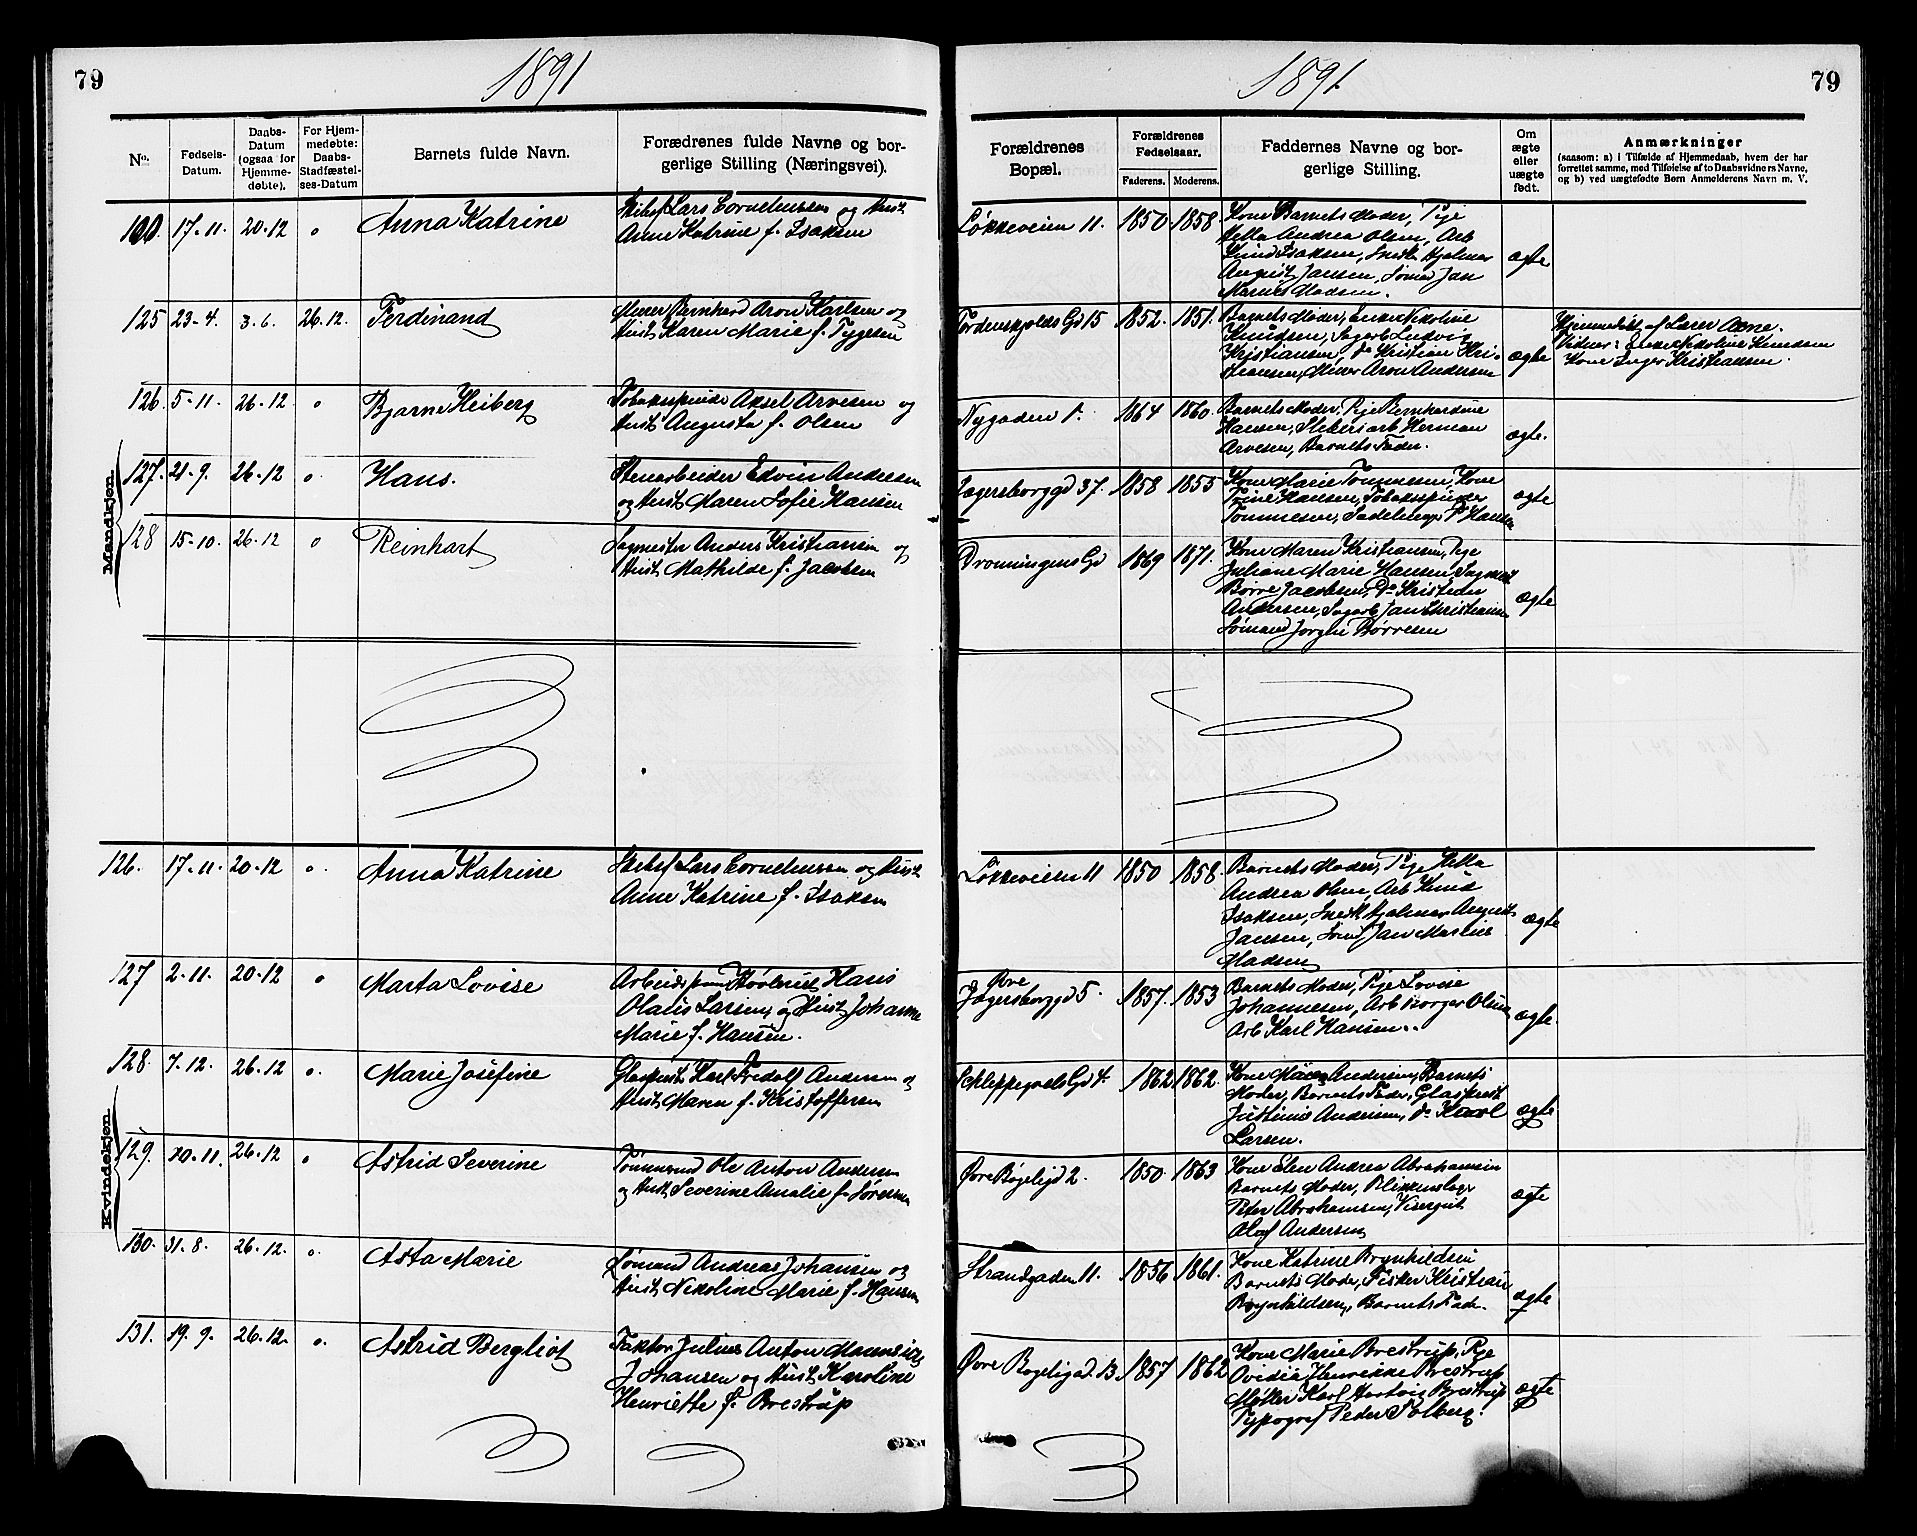 79
1891
No.
Fødsels-
Datum.
Daabs-
Datum
(ogsaa for
Hjemme-
døbte).
For Hjem-
medøbte:
Daabs-
Stadfæstel-
ses-Datum
Barnets fulde Navn.
Forædrenes fulde Navne og bor-
gerlige Stilling (Næringsvei).
100. 17-11. 20-12 " Anna Katrine
Lars Corneliussen og Hust
Anne Katrine f. Isaksen
125 23-4. 3.6. 26.12. Ferdinand
Murer Bernhard Aron Karlsen og
Hust. Karen Marie f. Tygesen
126. 5-11. 26-12 " Bjarne Heiberg
Aksel Arvesen og
Hust Augusta f. Olsen
Mandkjøn.
127. 21-9. 26-12 " Hans.
Stenarbeider Edvin Andresen
og Hust. Maren Sofie Hansen
128 15-10. 26-12 " Reinhart
Sagmester Anders Kristiansen og
Hust. Mathilde f. Jacobsen
126. 17-11. 20-12 " Anna Katrine
Lars Corneliussen og Hust
Anne Katrine f. Isaksen
127 2-11. 20-12 " Marta Lovise
Hans
Olaus Larsen og Hust Johanne
Marie f. Hansen.
128. 7-12. 26-12 " Marie Josefine
Karl Fredolf Andersen og
Hust. Maren f. Kristoffersen
Kvindekjøn.
129. 20-11. 26-12 " Astrid Severine
Tømmermd Ole Anton Andersen
og Hust. Severine Amalie f. Sørensen
130. 31-8. 26-12. " Asta Marie
Sømand Andreas Johansen og
Hust. Nikoline Marie f. Hansen
131. 19-9. 26-12. " Astrid Bergliot
Faktor Julius Anton
Johansen og Hust. Karoline
Henriette f. Brestrup
1891.
79
Forældrenes
Bopæl.
Forældrenes
Fødselsaar.
Faderens. Moderens.
Faddernes Navne og bor-
gerlige Stilling.
Om
ægte
eller
uægte
født.
Anmærkninger
(saasom: a) i Tilfælde af Hjemmedaab, hvem der har
forrettet samme, med Tilføielse af to Daabsvidners Navne,
og b) ved uægtefødte Børn Anmelderens Navn m. V.
Løkkeveien 11. 1850 1858.
Kone Barnets Moder, Pige
Hella Andrea Olsen, Arb
Knud Isaksen, Snedk Hjalmar
August Jansen, Sømd Jan
Marius Madsen.
ægte
Tordenskjolds Gd 15 1852. 1851.
Barnets Moder, Enke Nikoline
Knudsen, Sagarb Ludvig
Kristiansen, do Kristian Kri-
stiansen, Murer Aron Andersen
ægte
Hjemmedøbt af Lærer Aane.
Vidner: Enke Nikoline Knudsen
Kone Inger Kristiansen.
Nygaden 1. 1864 1860.
Barnets Moder, Pige Bernhardine
Hansen, Herman
Arvesen, Barnets Fader.
ægte.
Jægersborggd 37. 1858 1855
Kone Marie Tommesen, Kone
Trine Hansen, Tobakspinder
Tommesen, P Hansen
ægte
Dronningens Gd 1869 1871.
Kone Maren Kristiansen, Pige
Juliane Marie Hansen, Sagmest
Børre Jacobsen, Do Kristeder
Andersen, Sagarb Jan Christiansen
Sømand Jørgen Børresen
ægte
Løkkeveien 11 1850 1858.
Barnets Moder, Pige Hella
Andrea Olsen, Arb Knud
Isaksen, Snedk Hjalmar August
Jansen, Sømd Jan Marius
Madsen
ægte
Øvre
Jægersborggd 5. 1857. 1853
Barnets Moder, Pige Lovise
Johannesen, Arb Borger Olsen
Arb Karl Hansen.
ægte.
Schleppegrels Gd 4. 1862 1862.
Kone Maren Andersen, Barnets
Moder, Barnets Fader, Glaspust
Justinus Andersen, do Karl
Larsen.
ægte
Øvre Bøgeligd 2. 1850. 1863
Kone Elen Andrea Abrahamsen
Barnets Moder, Blikkenslager
Peter Abrahamsen, Visergut
Olaf Andersen
ægte
Strandgaden 11. 1856 1861.
Kone Katrine Brynhildsen
Barnets Moder, Fisker Kristian
Brynhildsen, Barnets Fader.
ægte
Øvre Bøgeligad. 13. 1857 1862
Kone Marie Brestrup, Pige
Ovidia Henrikke Brestrup
Møller Karl Hartvig Brestrup
Typograf Peder Solberg.
ægte